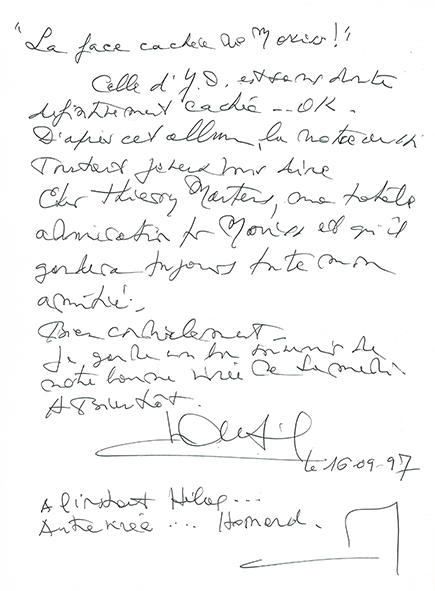 "La face cachée de Morris!"
Celle d'Y.D. est sans doute
définitivement cachée -- OK.
D'après cet album, la notre aussi
pour dire
Cher Thierry Martens, ma totale
admiration pr Morris et qu'il
gardera toujours toute mon
amitié.
Bien cordialement -
Je garde un bon souvenir de
notre bonne virée de samedi.
A Bientôt.
le 16-09-97
A l'instant ...
Antre .... Homard.